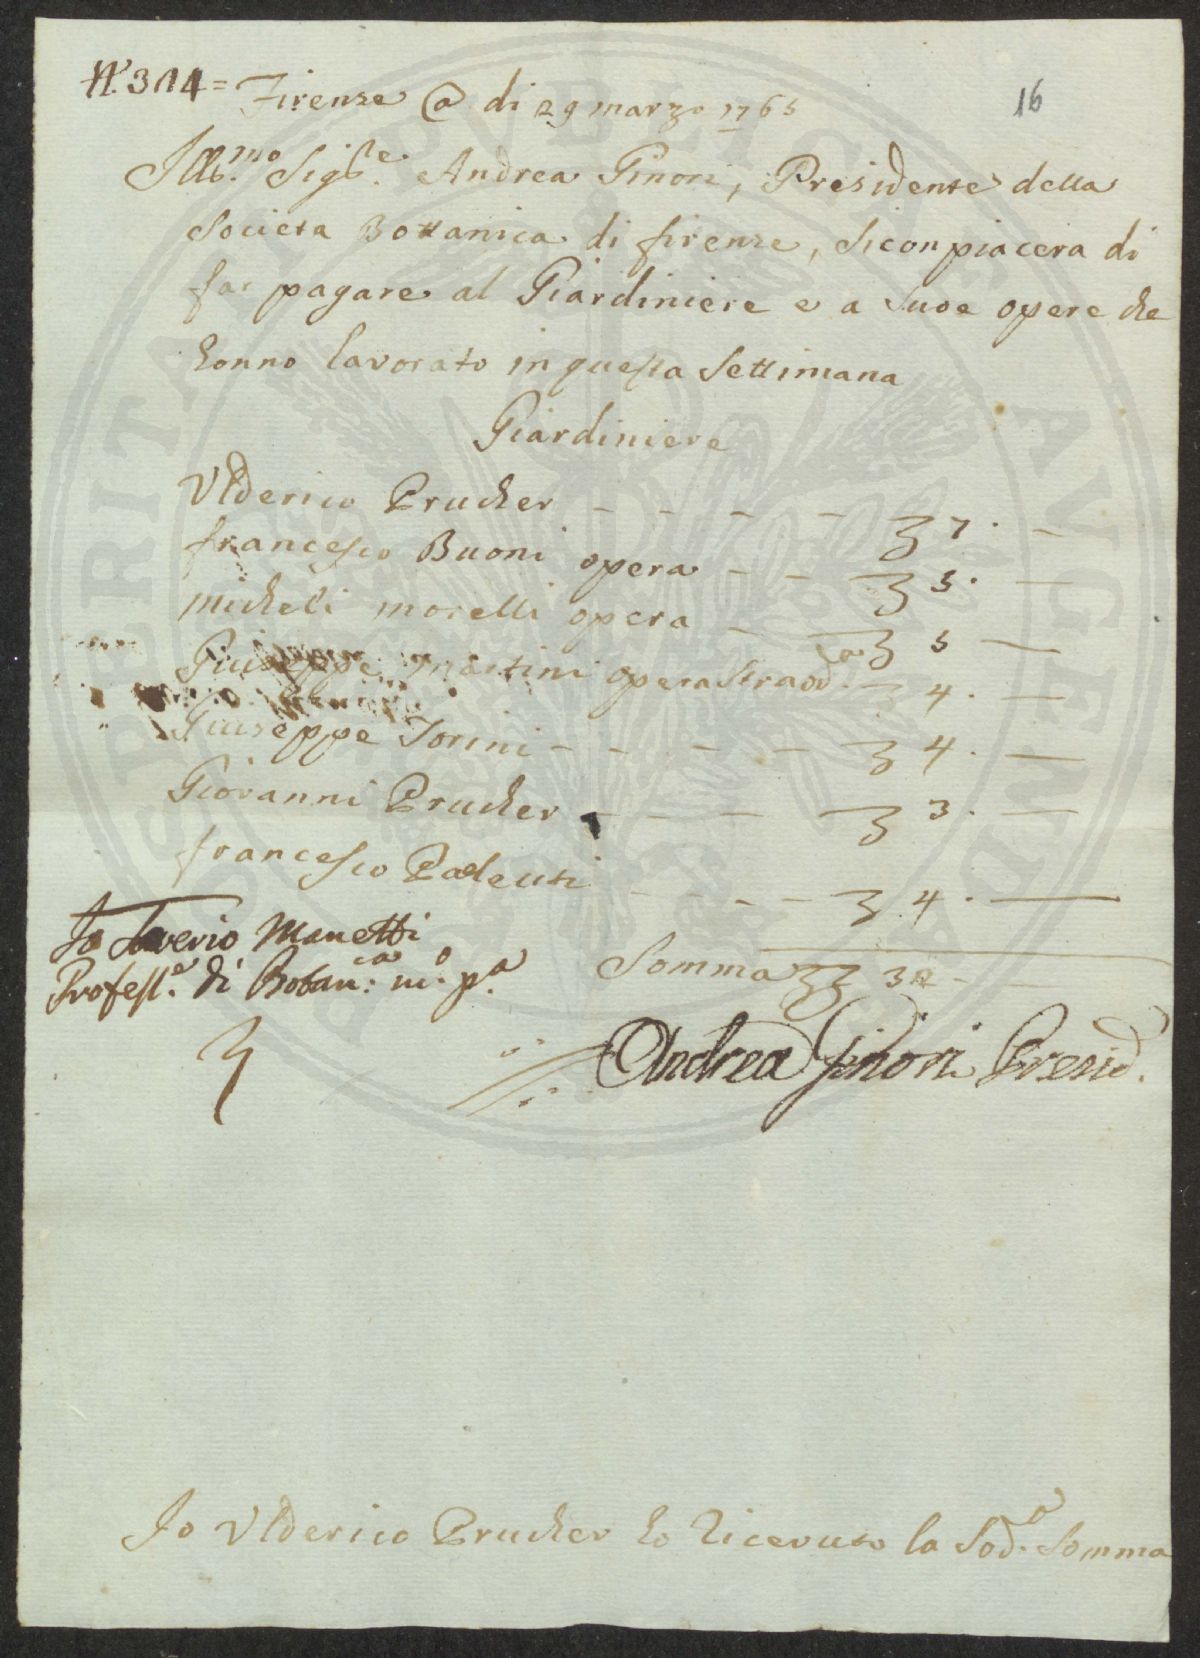 N.º 314 = Firenze @ di 29 marzo 1765
16
Ill.mo Sig.re Andrea Ginori, Presidente della
Societa Bottanica di firenze, Siconpiacera di
far pagare al Giardiniere e a Suoe opere che
honno lavorato in questa Settimana
Giardiniere
Ulderico Prucher - - - - 7. —
francesco Buoni opera - - 5. —
micheli morelli opera - 5 —
Giuseppe martini opera Straod.ra 4. —
Giuseppe Iorini - - - - 4. —
Giovanni Prucher - - - 3. —
francesco - - - - 4. —
Io Saverio Manetti
Profess.e di Botan.ca m.o p.a
Somma 32 - -
Andrea Ginori Presid.
Io Ulderico Prucher ho Riceuto la Sod.a Somma
PERITA PUBLICAE AUGENDAE